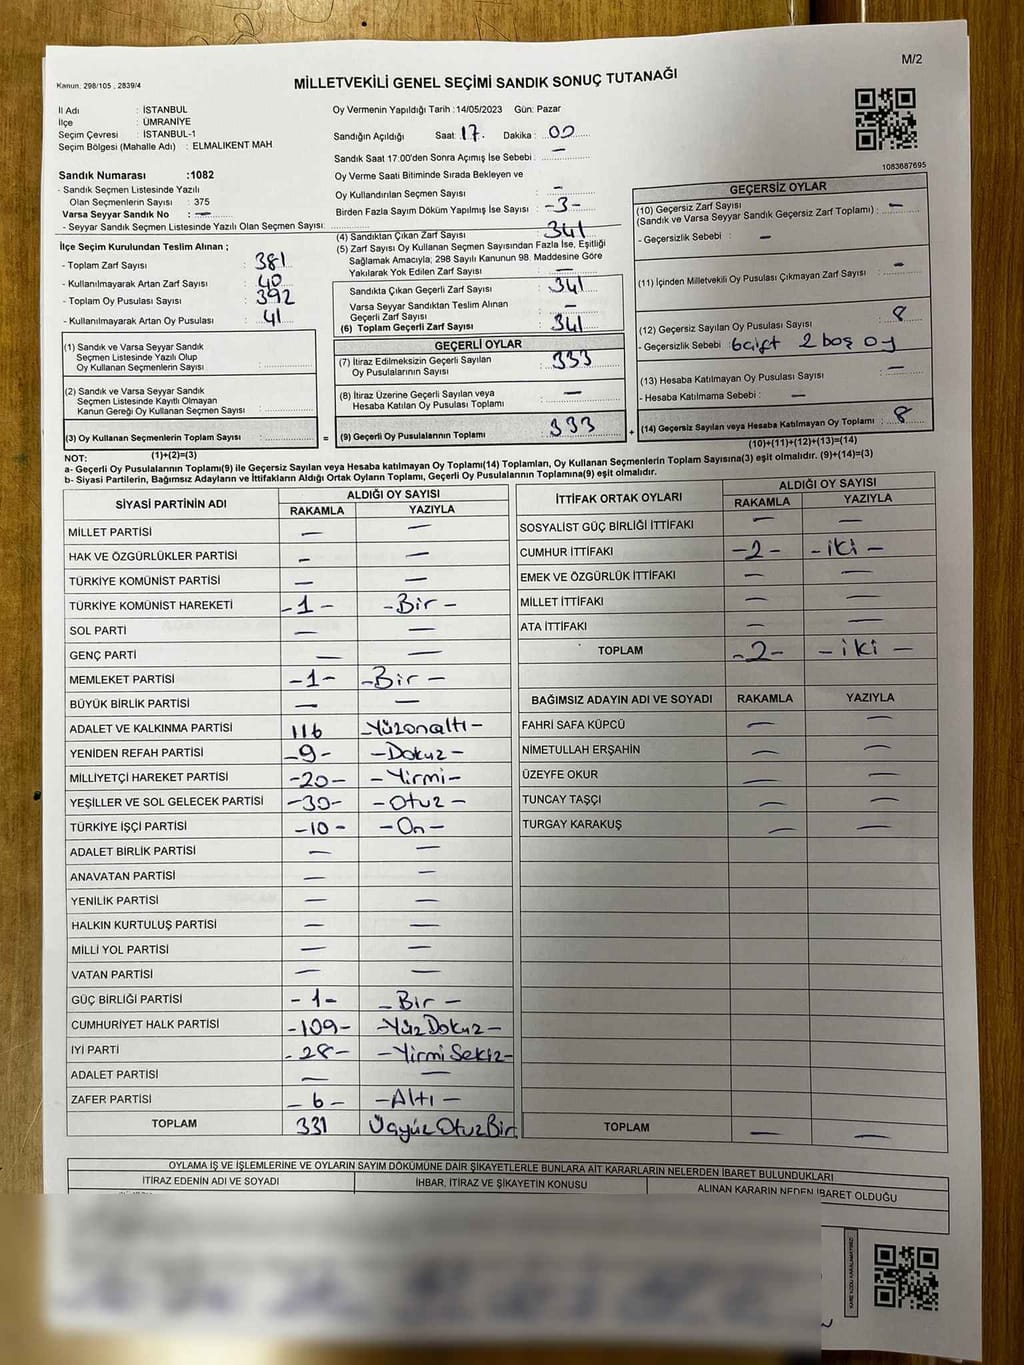 M/2
Kanun: 298/105 , 2839/4
MİLLETVEKİLİ GENEL SEÇİMİ SANDIK SONUÇ TUTANAĞI
İl Adı : İSTANBUL
İlçe : ÜMRANİYE
Seçim Çevresi : İSTANBUL-1
Seçim Bölgesi (Mahalle Adı) : ELMALIKENT MAH
Sandık Numarası :1082
- Sandık Seçmen Listesinde Yazılı
Olan Seçmenlerin Sayısı : 375
Varsa Seyyar Sandık No : —
- Seyyar Sandık Seçmen Listesinde Yazılı Olan Seçmen Sayısı:
İlçe Seçim Kurulundan Teslim Alınan ;
- Toplam Zarf Sayısı : 381
- Kullanılmayarak Artan Zarf Sayısı : 40
- Toplam Oy Pusulası Sayısı : 392
- Kullanılmayarak Artan Oy Pusulası : 41
(1) Sandık ve Varsa Seyyar Sandık
Seçmen Listesinde Yazılı Olup
Oy Kullanan Seçmenlerin Sayısı :
(2) Sandık ve Varsa Seyyar Sandık
Seçmen Listesinde Kayıtlı Olmayan
Kanun Gereği Oy Kullanan Seçmen Sayısı :
(3) Oy Kullanan Seçmenlerin Toplam Sayısı : =
(1)+(2)=(3)
Oy Vermenin Yapıldığı Tarih :14/05/2023 Gün: Pazar
Sandığın Açıldığı Saat: 17. Dakika : 00
Sandık Saat 17:00'den Sonra Açımış İse Sebebi : —
Oy Verme Saati Bitiminde Sırada Bekleyen ve
Oy Kullandırılan Seçmen Sayısı : —
Birden Fazla Sayım Döküm Yapılmış İse Sayısı : -3-
(4) Sandıktan Çıkan Zarf Sayısı : 341
(5) Zarf Sayısı Oy Kullanan Seçmen Sayısından Fazla İse, Eşitliği
Sağlamak Amacıyla; 298 Sayılı Kanunun 98. Maddesine Göre
Yakılarak Yok Edilen Zarf Sayısı : —
Sandıkta Çıkan Geçerli Zarf Sayısı : 341
Varsa Seyyar Sandıktan Teslim Alınan
Geçerli Zarf Sayısı : —
(6) Toplam Geçerli Zarf Sayısı : 341
GEÇERLİ OYLAR
(7) İtiraz Edilmeksizin Geçerli Sayılan
Oy Pusulalarının Sayısı : 333
(8) İtiraz Üzerine Geçerli Sayılan veya
Hesaba Katılan Oy Pusulası Toplamı : —
(9) Geçerli Oy Pusulalarının Toplamı : 333 +
1083687695
GEÇERSİZ OYLAR
(10) Geçersiz Zarf Sayısı
(Sandık ve Varsa Seyyar Sandık Geçersiz Zarf Toplamı) : —
- Geçersizlik Sebebi : —
(11) İçinden Milletvekili Oy Pusulası Çıkmayan Zarf Sayısı : —
(12) Geçersiz Sayılan Oy Pusulası Sayısı : 8
- Geçersizlik Sebebi : 6 çift 2 boş oy
(13) Hesaba Katılmayan Oy Pusulası Sayısı : —
- Hesaba Katılmama Sebebi : —
(14) Geçersiz Sayılan veya Hesaba Katılmayan Oy Toplamı : 8
(10)+(11)+(12)+(13)=(14)
NOT:
a- Geçerli Oy Pusulalarının Toplamı(9) ile Geçersiz Sayılan veya Hesaba katılmayan Oy Toplamı(14) Toplamları, Oy Kullanan Seçmenlerin Toplam Sayısına(3) eşit olmalıdır. (9)+(14)=(3)
b- Siyasi Partilerin, Bağımsız Adayların ve İttifakların Aldığı Ortak Oyların Toplamı, Geçerli Oy Pusulalarının Toplamına(9) eşit olmalıdır.
SİYASİ PARTİNİN ADI ALDIĞI OY SAYISI
RAKAMLA YAZIYLA
MİLLET PARTİSİ — —
HAK VE ÖZGÜRLÜKLER PARTİSİ — —
TÜRKİYE KOMÜNİST PARTİSİ — —
TÜRKİYE KOMÜNİST HAREKETİ -1- -Bir-
SOL PARTİ — —
GENÇ PARTİ — —
MEMLEKET PARTİSİ -1- -Bir-
BÜYÜK BİRLİK PARTİSİ — —
ADALET VE KALKINMA PARTİSİ 116 -Yüzonaltı-
YENİDEN REFAH PARTİSİ -9- -Dokuz-
MİLLİYETÇİ HAREKET PARTİSİ -20- -Yirmi-
YEŞİLLER VE SOL GELECEK PARTİSİ -30- -Otuz-
TÜRKİYE İŞÇİ PARTİSİ -10- -On-
ADALET BİRLİK PARTİSİ — —
ANAVATAN PARTİSİ — —
YENİLİK PARTİSİ — —
HALKIN KURTULUŞ PARTİSİ — —
MİLLİ YOL PARTİSİ — —
VATAN PARTİSİ — —
GÜÇ BİRLİĞİ PARTİSİ -1- -Bir-
CUMHURİYET HALK PARTİSİ -109- -YüzDokuz-
İYİ PARTİ -28- -YirmiSekiz-
ADALET PARTİSİ — —
ZAFER PARTİSİ -6- -Altı-
TOPLAM 331 ÜçyüzOtuzBir
İTTİFAK ORTAK OYLARI ALDIĞI OY SAYISI
RAKAMLA YAZIYLA
SOSYALİST GÜÇ BİRLİĞİ İTTİFAKI — —
CUMHUR İTTİFAKI -2- -iki-
EMEK VE ÖZGÜRLÜK İTTİFAKI — —
MİLLET İTTİFAKI — —
ATA İTTİFAKI — —
TOPLAM -2- -iki-
BAĞIMSIZ ADAYIN ADI VE SOYADI RAKAMLA YAZIYLA
FAHRİ SAFA KÜPCÜ — —
NİMETULLAH ERŞAHİN — —
ÜZEYFE OKUR — —
TUNCAY TAŞÇI — —
TURGAY KARAKUŞ — —
TOPLAM — —
OYLAMA İŞ VE İŞLEMLERİNE VE OYLARIN SAYIM DÖKÜMÜNE DAİR ŞİKAYETLERLE BUNLARA AİT KARARLARIN NELERDEN İBARET BULUNDUKLARI
İTİRAZ EDENİN ADI VE SOYADI İHBAR, İTİRAZ VE ŞİKAYETİN KONUSU ALINAN KARARIN NEDEN İBARET OLDUĞU
KARE KODU KARALAMAYINIZ!